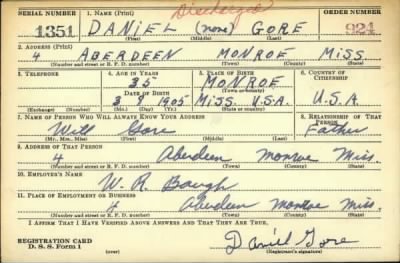 SERIAL NUMBER 1. NAME (Print) Discharged ORDER NUMBER
1351 DANIEL (none) GORE 924
(First) (Middle) (Last)
2. ADDRESS (Print)
4 ABERDEEN MONROE MISS.
(Number and street or R. F. D. number) (Town) (County) (State)
3. TELEPHONE 4. AGE IN YEARS 5. PLACE OF BIRTH 6. COUNTRY OF CITIZENSHIP
35 MONROE
DATE OF BIRTH (Town or county)
3 8 1905 MISS. U.S.A. U.S.A.
(Exchange) (Number) (Mo.) (Day) (Yr.) (State or country)
7. NAME OF PERSON WHO WILL ALWAYS KNOW YOUR ADDRESS 8. RELATIONSHIP OF THAT PERSON
Will Gore Father
(Mr., Mrs., Miss) (First) (Middle) (Last)
9. ADDRESS OF THAT PERSON
4 Aberdeen Monroe Miss.
(Number and street or R. F. D. number) (Town) (County) (State)
10. EMPLOYER'S NAME
W. R. Baugh
11. PLACE OF EMPLOYMENT OR BUSINESS
4 Aberdeen Monroe Miss.
(Number and street or R. F. D. number) (Town) (County) (State)
I AFFIRM THAT I HAVE VERIFIED ABOVE ANSWERS AND THAT THEY ARE TRUE.
REGISTRATION CARD
D. S. S. Form 1 (over) Daniel Gore
(Registrant's signature)